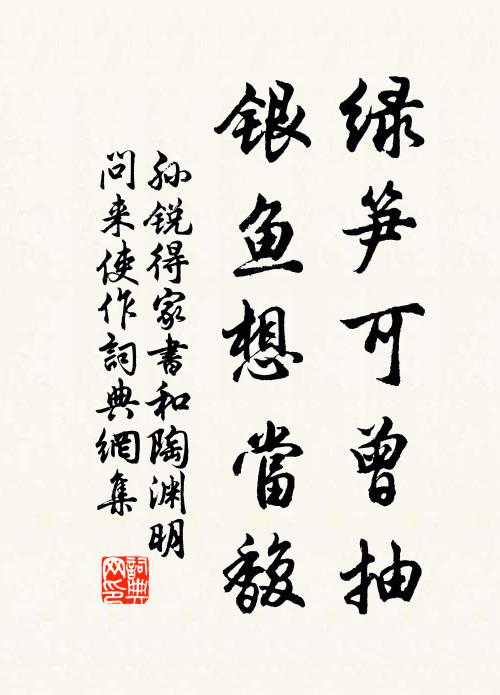 绿笋可曾抽
银鱼想當馥
孙锐得家書和陶渊明
問来使作詞典網集
詞典网印